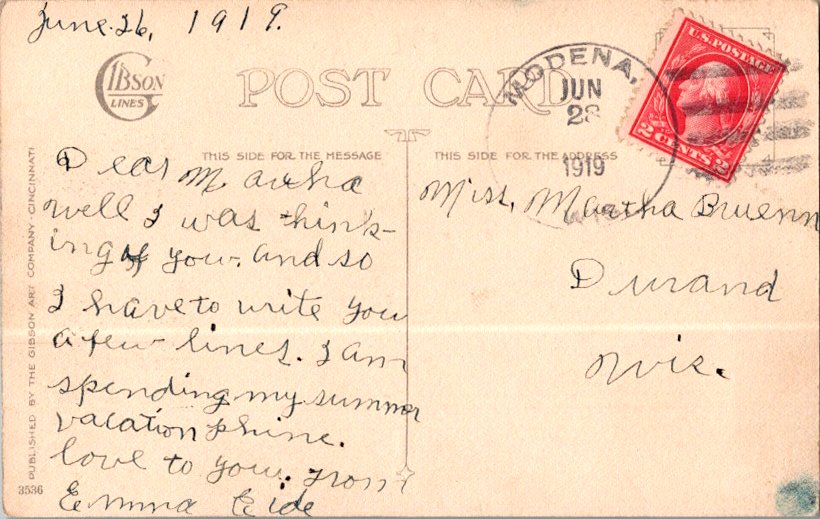 June. 26, 1919.
GIBSON
LINES
POST CARD
MODENA,
JUN
28
1919
WIS.
U.S. POSTAGE
2 CENTS 2
THIS SIDE FOR THE MESSAGE
THIS SIDE FOR THE ADDRESS
Dear Martha
well I was think-
ing of you. and so
I have to write you
a few lines. I am
spending my summer
vacation phine.
love to you. from
Emma Eide
Miss. Martha Bruenn
Durand
Wis.
PUBLISHED BY THE GIBSON ART COMPANY · CINCINNATI
3536